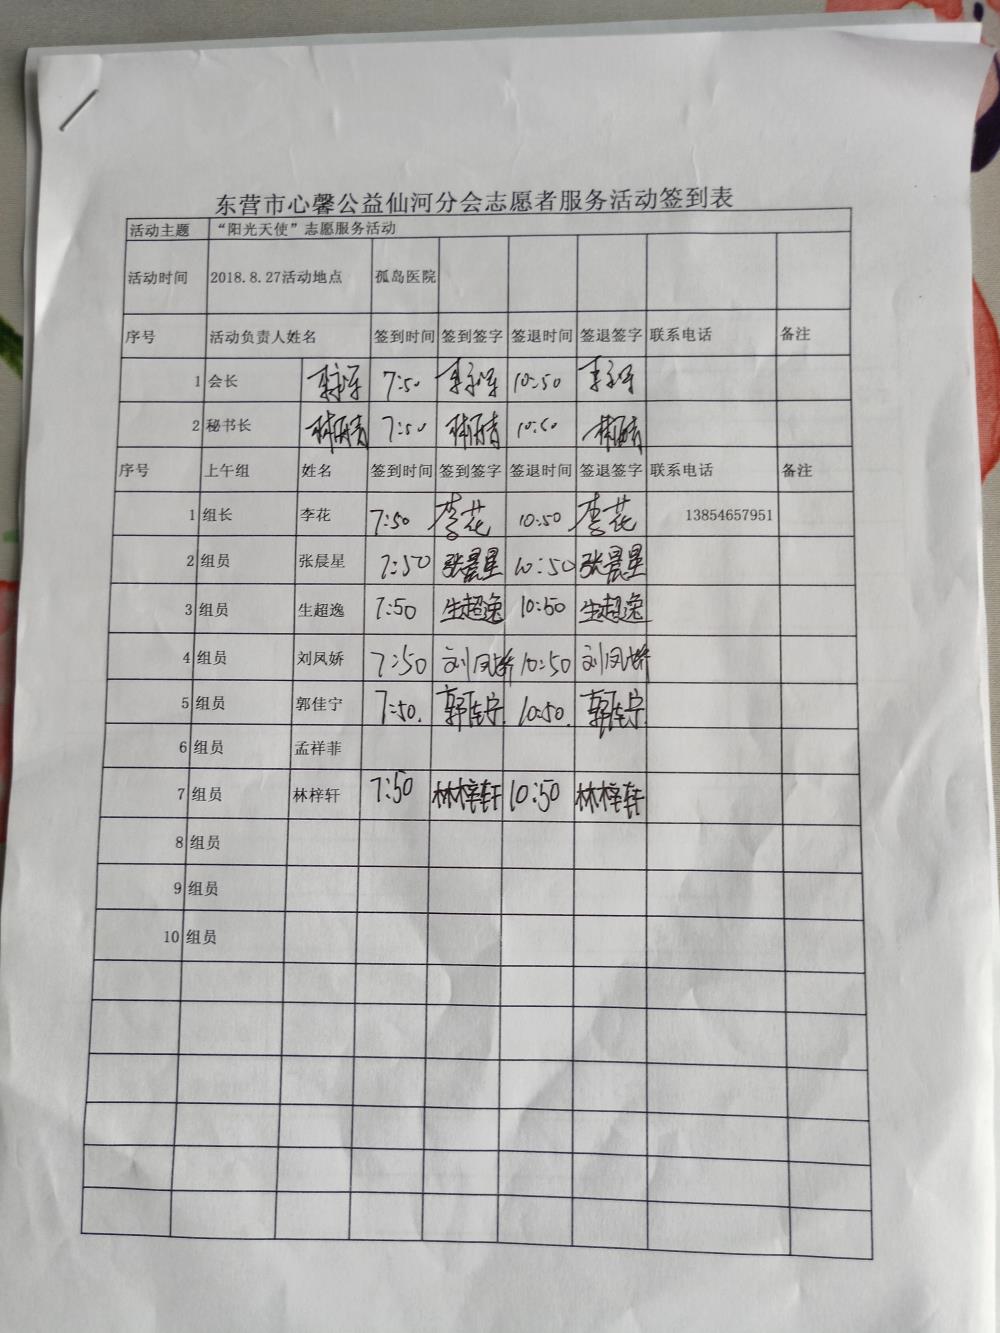 东营市心馨公益仙河分会志愿者服务活动签到表
活动主题 “阳光天使”志愿服务活动
活动时间 2018.8.27活动地点 孤岛医院
序号 活动负责人姓名 签到时间 签到签字 签退时间 签退签字 联系电话 备注
1 会长 7:50 10:50
2 秘书长 7:50 10:50
序号 上午组 姓名 签到时间 签到签字 签退时间 签退签字 联系电话 备注
1 组长 李花 7:50 李花 10:50 李花 13854657951
2 组员 张晨星 7:50 张晨星 10:50 张晨星
3 组员 生超逸 7:50 生超逸 10:50 生超逸
4 组员 刘凤娇 7:50 刘凤娇 10:50 刘凤娇
5 组员 郭佳宁 7:50. 郭佳宁 10:50. 郭佳宁
6 组员 孟祥菲
7 组员 林梓轩 7:50 林梓轩 10:50 林梓轩
8 组员
9 组员
10 组员